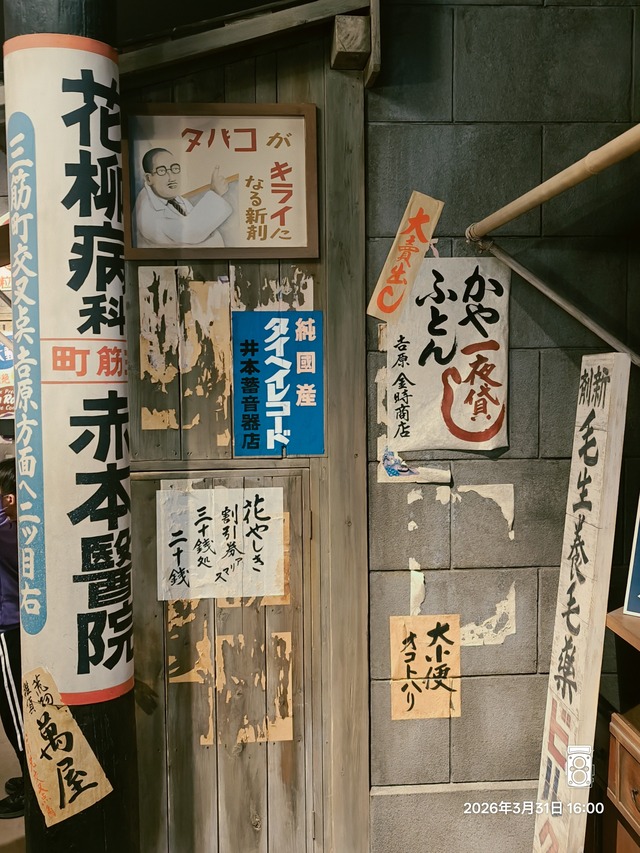 花柳病科
町筋三
赤本醫院
三筋町交叉点吉原方面へ二ツ目右
荒物
雑貨
萬屋
タバコが
キライに
なる新剤
純國産
タイヘイレコード
井本蓄音器店
花やしき
割引券アリマス
三十銭処
二十銭
大賣出し
かや
一夜貸
ふとん
吉原 金時商店
大小便
オコトハリ
新剤
毛生養毛薬
2026年3月31日 16:00